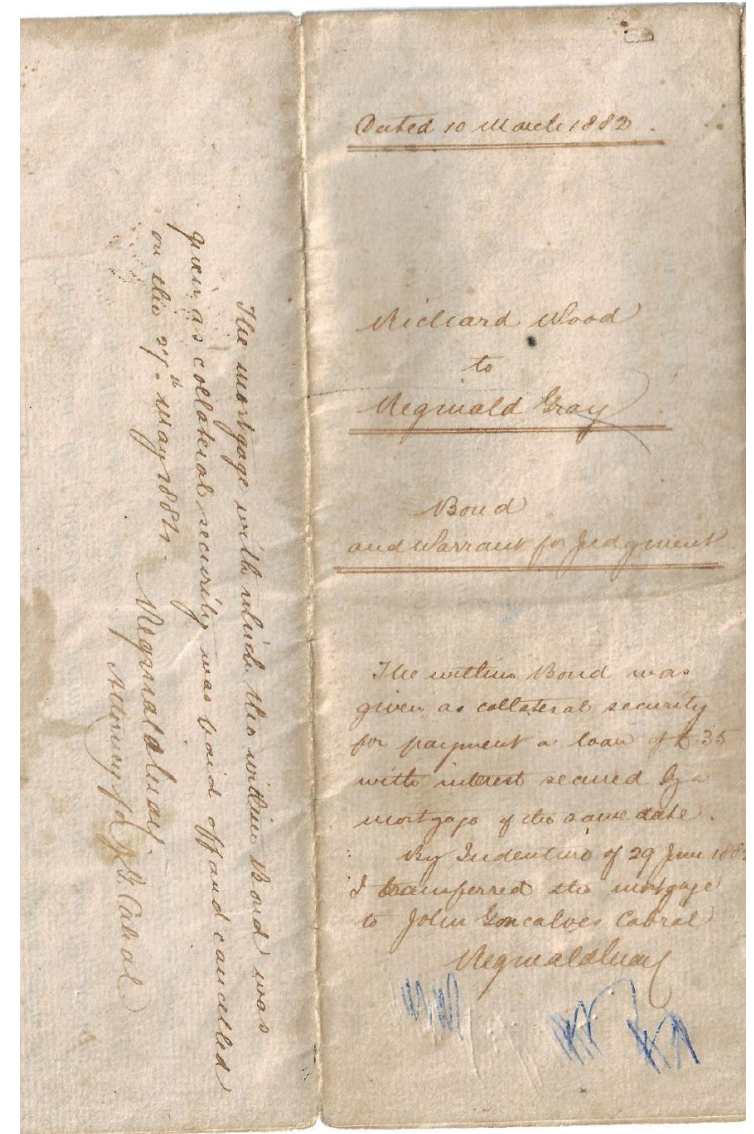 Dated 10 March 1882.
Richard Wood
to
Reginald Gray
Bond
and Warrant for Judgment
The within Bond was
given as collateral security
for payment a loan of £35
with interest secured by a
mortgage of the same date.
By Indenture of 29 June 188
I transferred the mortgage
to John Goncalves Cabral
Reginald Gray
The mortgage with which the within Bond was
given as collateral security was paid off and cancelled
on the 27th May 1884.
Reginald Gray
Attorney for J. G. Cabral